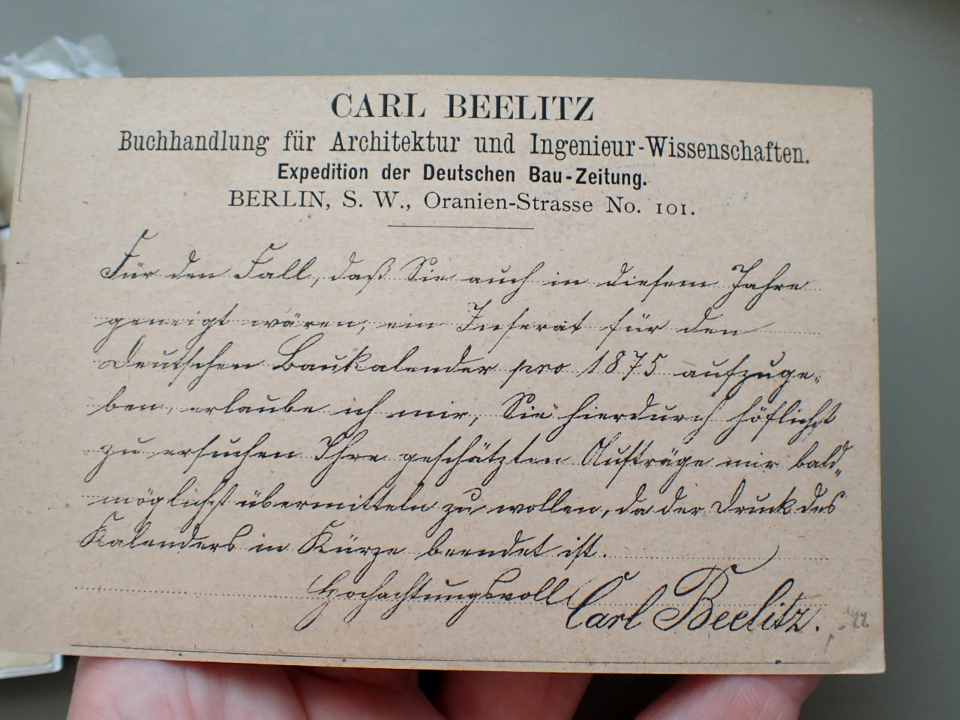 CARL BEELITZ
Buchhandlung für Architektur und Ingenieur-Wissenschaften.
Expedition der Deutschen Bau-Zeitung.
BERLIN, S. W., Oranien-Strasse No. 101.
Für den Fall, daß Sie auch in diesem Jahre
geneigt wären, ein Inserat für den
Deutschen Baukalender pro 1875 aufzuge-
ben, erlaube ich mir, Sie hierdurch höflichst
zu ersuchen Ihre geschätzten Aufträge mir bald-
möglichst übermitteln zu wollen, da der Druck des
Kalenders in Kürze beendet ist.
Hochachtungsvoll
Carl Beelitz.